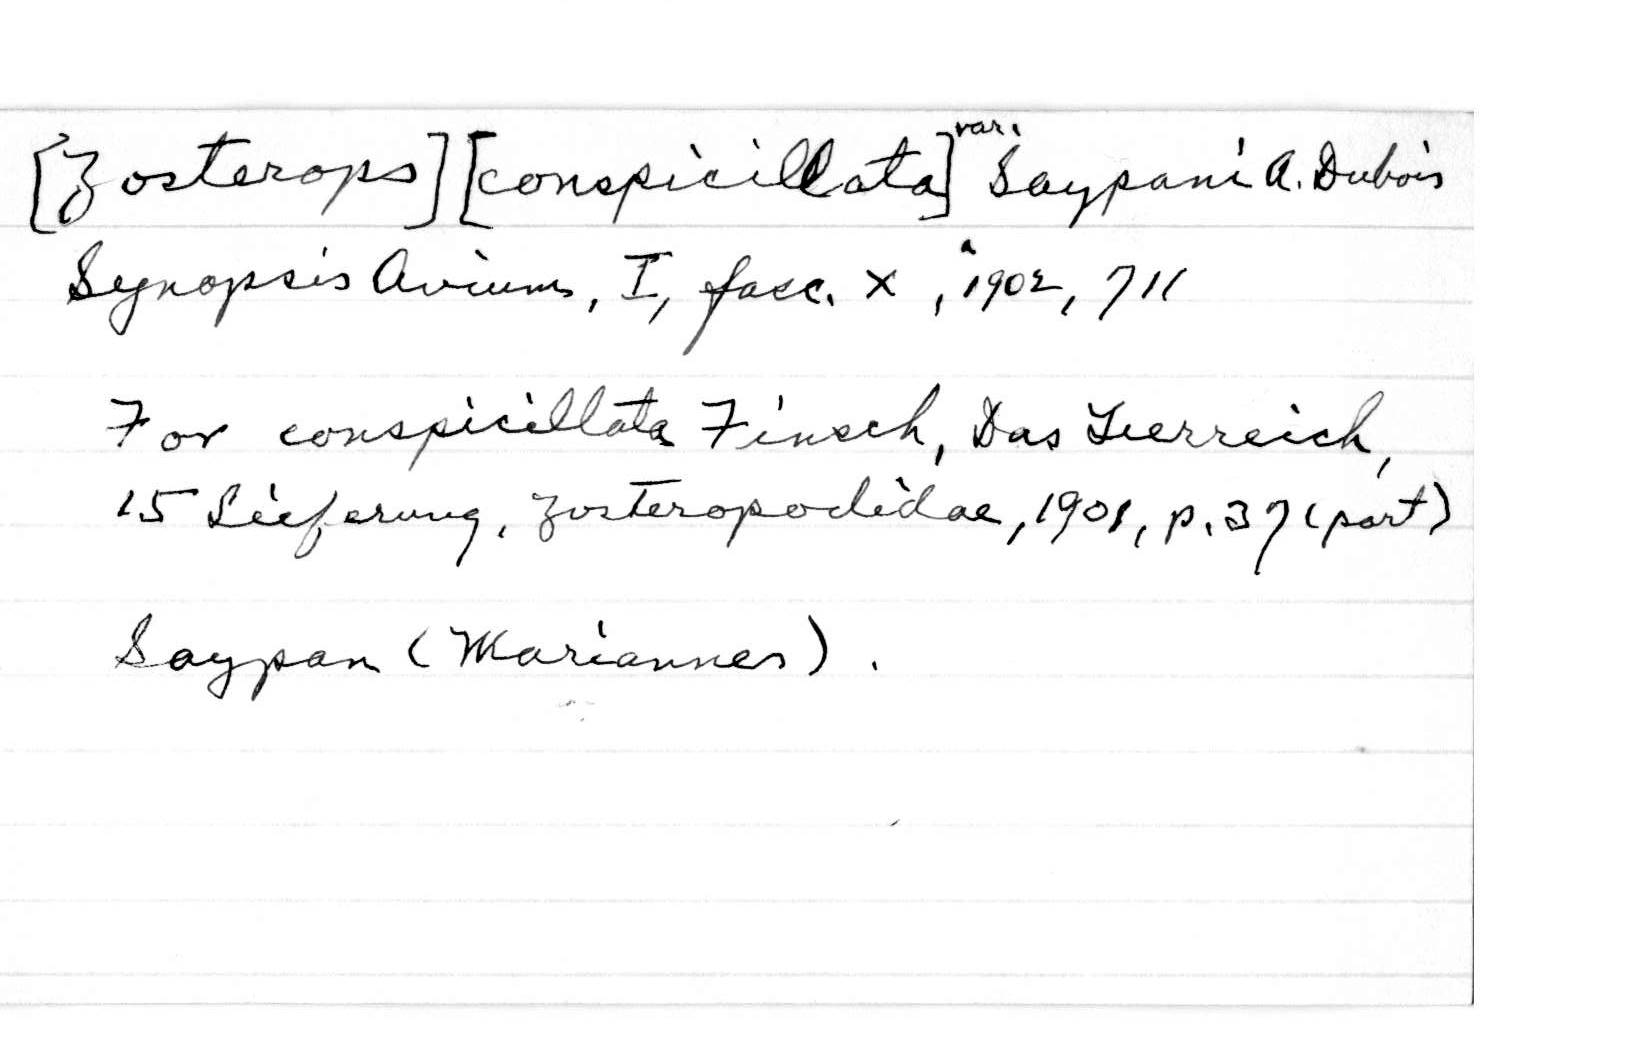 [Zosterops] [conspicillata] var. Saypani A. Dubois
Synopsis Avium, I, fasc. X, 1902, 711
For conspicillata Finsch, Das Tierreich,
15 Lieferung, Zosteropodidae, 1901, p. 37 (part)
Saypan (Mariannes).